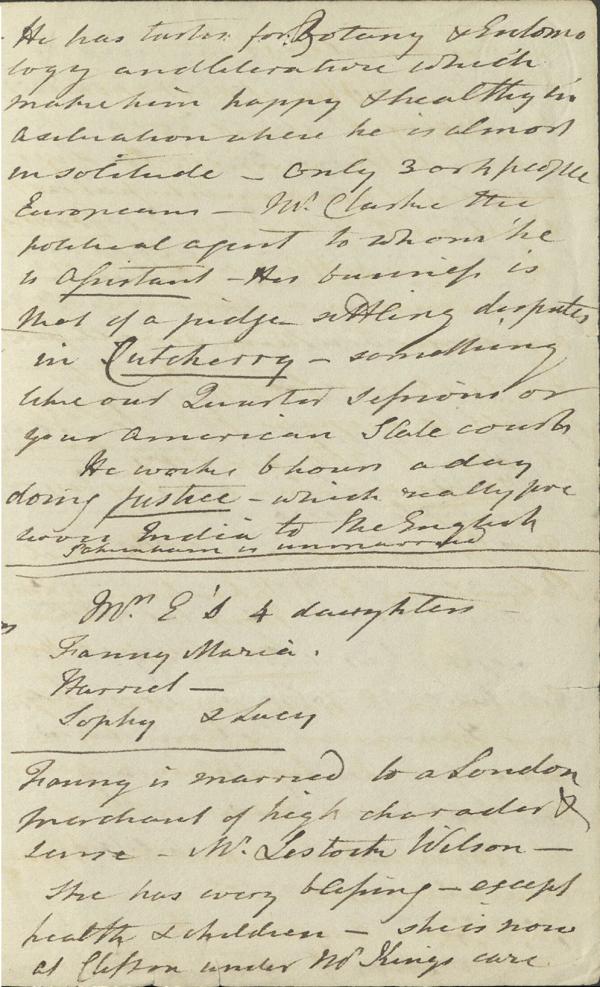 He has tastes for Botany & Entomo
logy and literature which
make him happy & healthy in
a situation where he is almost
in solitude – only 3 or 4 people
Europeans – Mr. Clarke the
political agent to whom he
is assistant – His business is
that of a judge settling disputes
in Cutcherry – something
like our Quarter Sessions or
your American State courts
He works 6 hours a day
doing justice – which really pre
serves India to the English
Pakenham is unmarried
Mrs. E's 4 daughters
Fanny Maria.
Harriet –
Sophy & Lucy
Fanny is married to a London
merchant of high character &
sense – Mr. Lestock Wilson –
She has every blessing – except
health & children – she is now
at Clifton under Mr Kings care